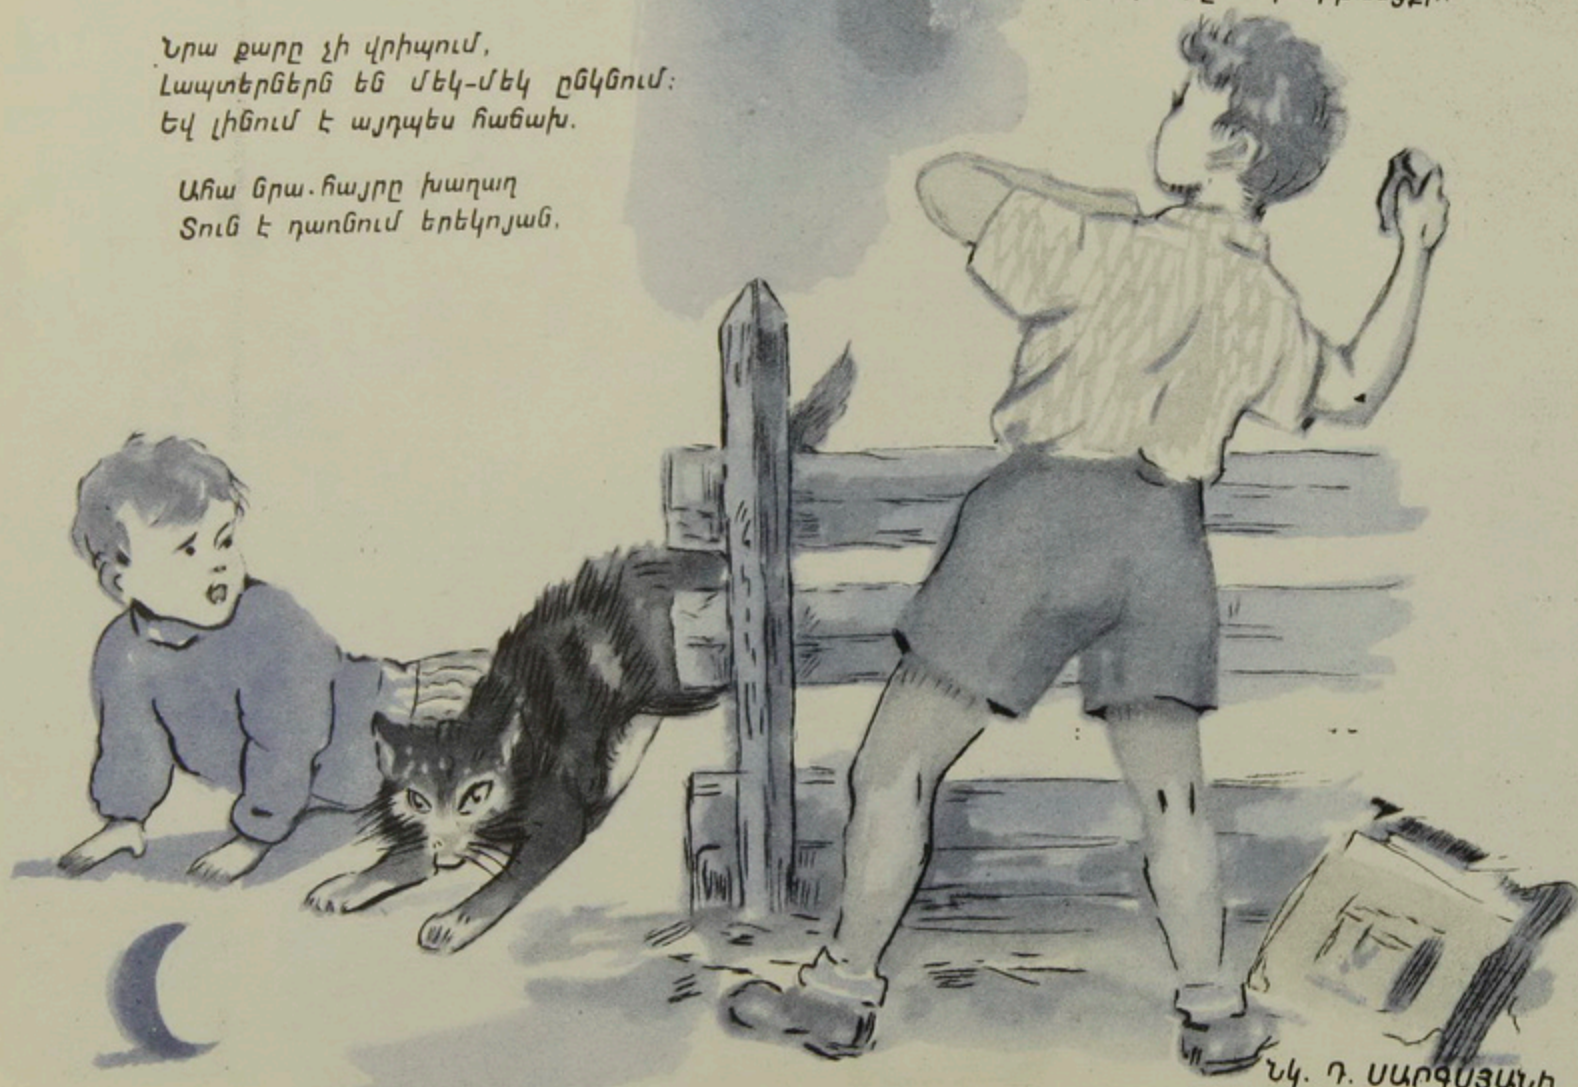 Նրա քարը չի վրիպում,
Լապտերներն են մեկ-մեկ ընկնում:
Եվ լինում է այդպես հաճախ.
Ահա նրա հայրը խաղաղ
Տուն է դառնում երեկոյան,
Նկ. Դ. ՍԱՐԳՍՅԱՆԻ